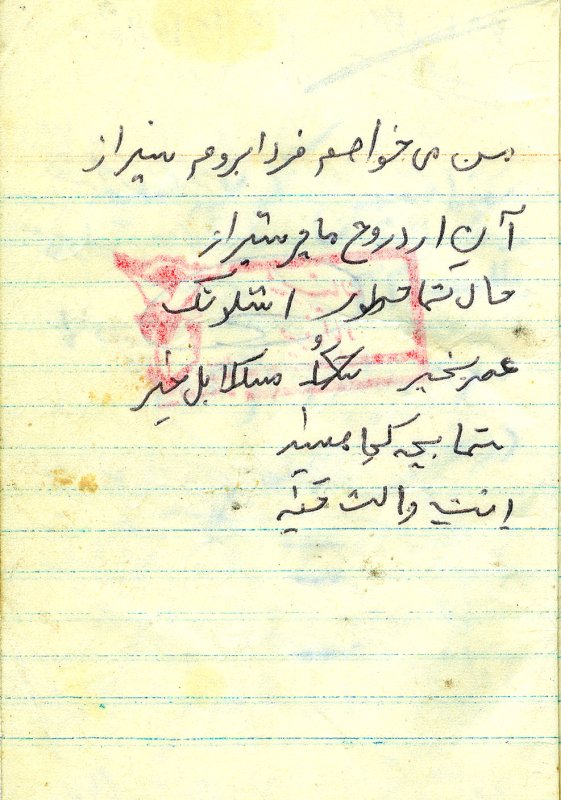 من می خواهم فردا بروم شیراز
آنی ارد روح باچر شیراز
حال شما چطور اشلونک
عصر بخیر شکراً مسالا بل خیر
شما بچه کجا هستید
انت والث قیّه